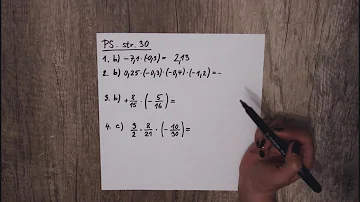 PS. str. 30
1. b) -7,1 · (-0,3) = 2,13
2. b) 0,25 · (-0,3) · (-0,4) · (-1,2) = -
3. b) + 8/15 · (- 5/16) =
4. c) 3/2 · 8/21 · (- 10/30) =